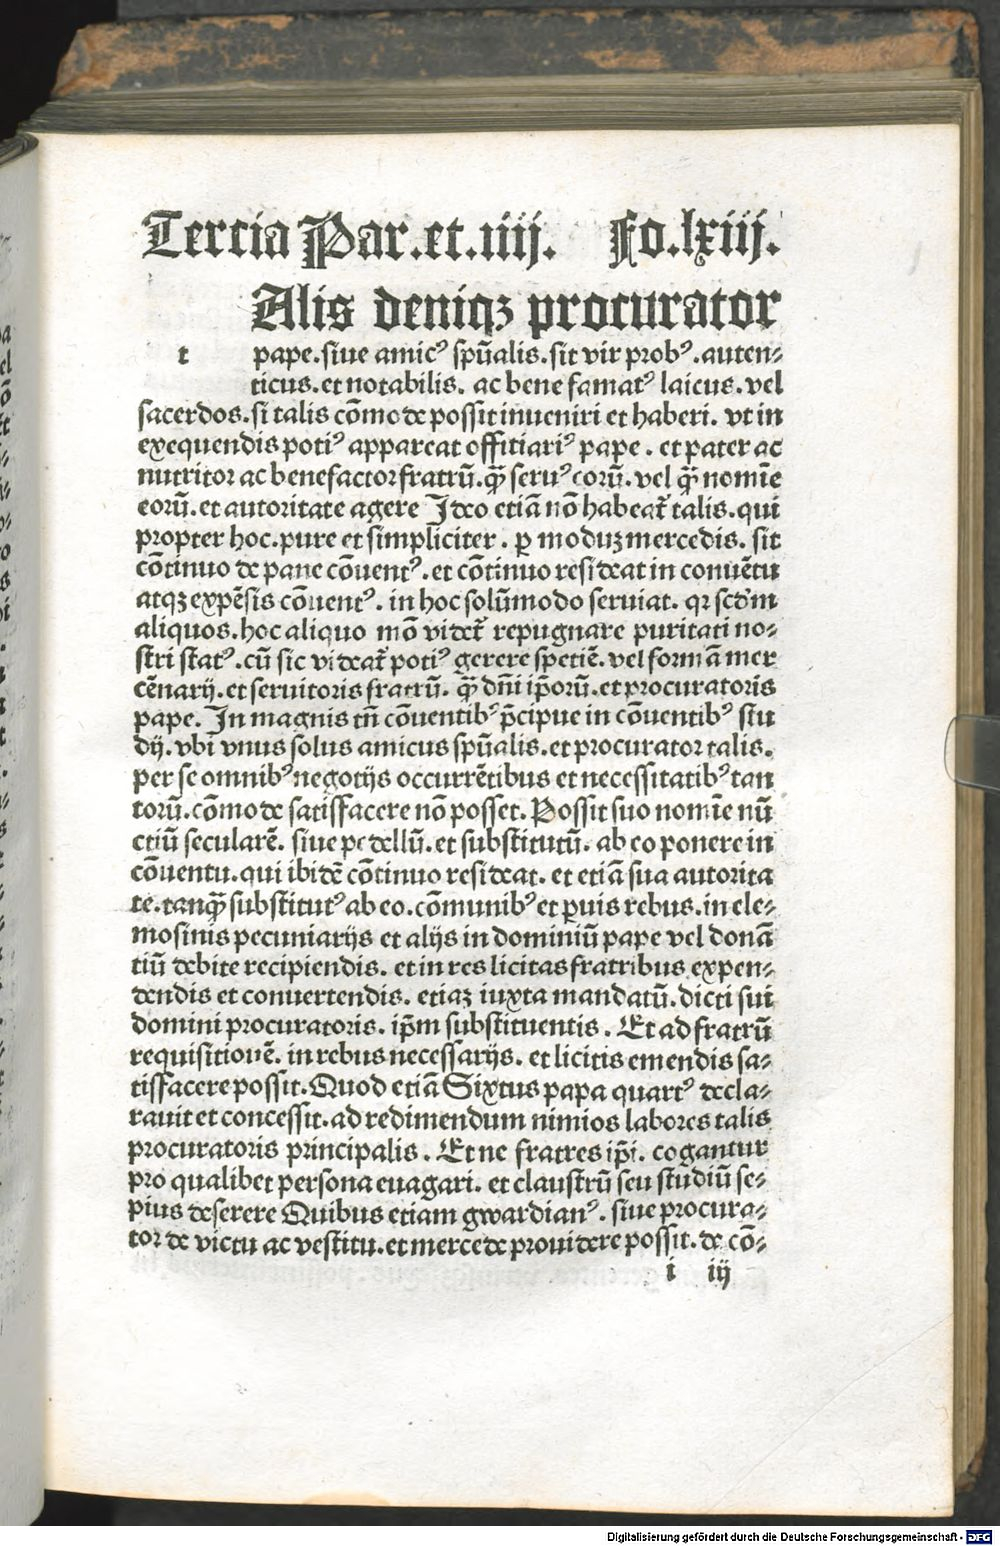 Tercia Par.et.iiij. Fo.lxiij.
Alis deniqꝫ procurator
t pape.siue amicꝰ spũalis.sit vir probꝰ.auten⸗
ticus.et notabilis. ac bene famatꝰ laicus.vel
sacerdos.si talis cõmode possit inueniri et haberi. vt in
exequendis potiꝰ appareat offitiariꝰ pape. et pater ac
nutritor ac benefactor fratrũ.q̃ȝ seruꝰ eorũ.vel q̃ȝ nomĩe
eorũ.et autoritate agere Ideo etiã nõ habeat̃ talis.qui
propter hoc.pure et simpliciter. ꝑ moduꝫ mercedis. sit
cõtinuo de pane cõuentꝰ.et cõtinuo resideat in conuẽtu
atqꝫ expẽsis cõuentꝰ. in hoc solũmodo seruiat. qꝛ scďm
aliquos.hoc aliquo mõ videt̃ repugnare puritati no⸗
stri statꝰ.cũ sic videat̃ potiꝰ gerere spetiẽ.vel formã mer
cẽnarij.et seruitoris fratrũ. q̃ȝ dñi ip̃orũ.et procuratoris
pape. In magnis tñ cõuentibꝰ p̃cipue in cõuentibꝰ stu
dij.vbi vnus solus amicus spũalis.et procurator talis.
per se omnibꝰ negotijs occurrẽtibus et necessitatibꝰ tan
torũ.cõmode satisfacere nõ posset. Possit suo nomĩe nũ
ctiũ secularẽ. siue pedellũ.et substitutũ. ab eo ponere in
cõuentu.qui ibidẽ cõtinuo resideat. et etiã sua autorita
te.tanq̃ȝ substitutꝰ ab eo.cõmunibꝰ et ꝑuis rebus.in ele⸗
mosinis pecuniarijs et alijs in dominiũ pape vel donã
tiũ debite recipiendis. et in res licitas fratribus expen⸗
dendis et conuertendis. etiaꝫ iuxta mandatũ.dicti sui
domini procuratoris. ip̃m substituentis. Et ad fratrũ
requisitionẽ. in rebus necessarijs. et licitis emendis sa⸗
tisfacere possit.Quod etiã Sixtus papa quartꝰ decla⸗
rauit et concessit.ad redimendum nimios labores talis
procuratoris principalis. Et ne fratres ip̃i. cogantur
pro qualibet persona euagari. et claustrũ seu studiũ se⸗
pius deserere Quibus etiam gwardianꝰ. siue procura⸗
tor de victu ac vestitu.et mercede prouidere possit.de cõ⸗
i iij
Digitalisierung gefördert durch die Deutsche Forschungsgemeinschaft - DFG